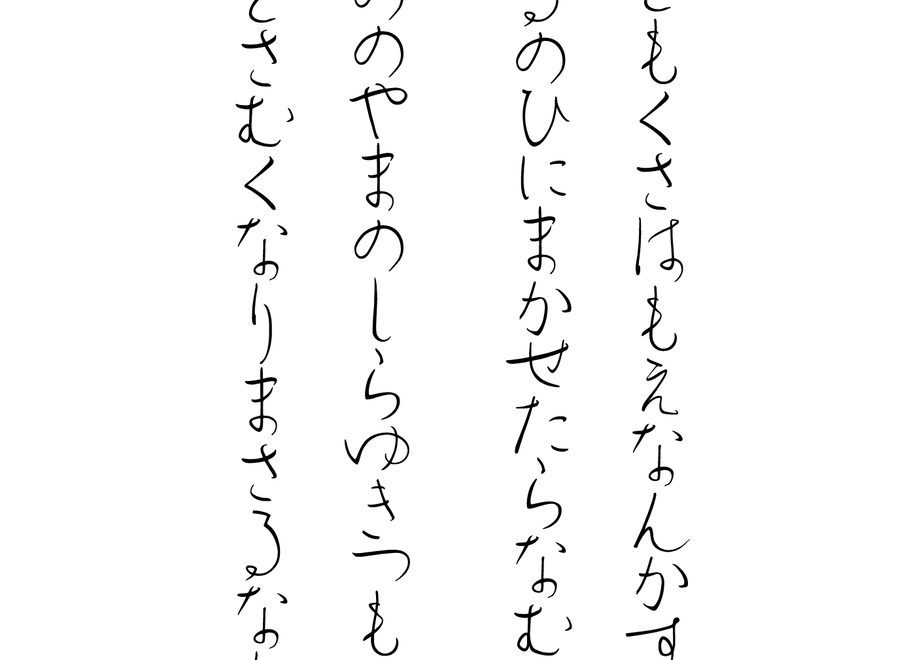 もくさはもえなんかす
るのひにまかせたらなむ
のやまのしらゆきつも
さむくなりまさるな